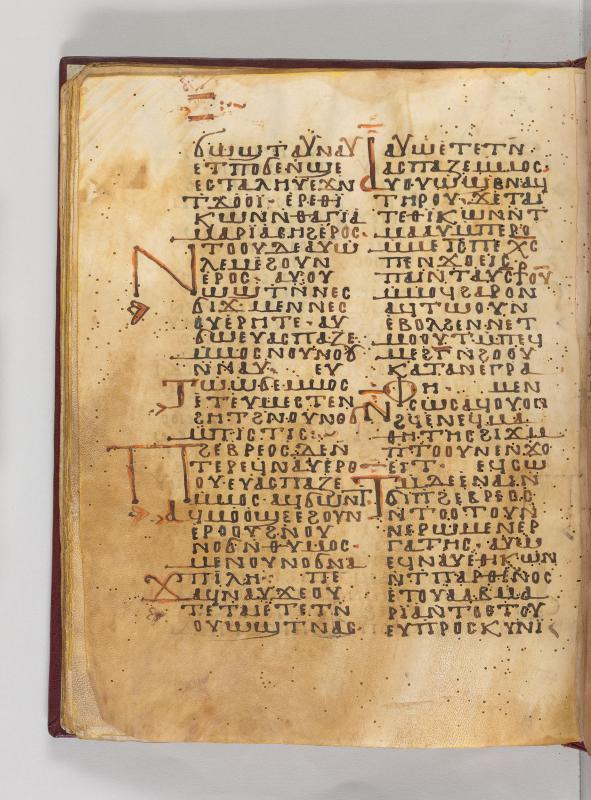 ϭⲱϣⲧ ⲁⲩⲛⲁⲩ
ⲉⲧⲡⲟϭⲉⲛϣⲉ
ⲉⲥⲧⲁⲗⲏⲩ ⲉϫⲛ
ⲧϫⲟⲓ· ⲉⲣⲉⲑⲓ
ⲕⲱⲛ ⲛⲑⲁⲅⲓⲁ
ⲙⲁⲣⲓⲁ ⲥⲏϩ ⲉⲣⲟⲥ·
ⲛⲧⲟⲟⲩ ⲇⲉ ⲁⲩⲱ
ⲗⲉ ⲙⲉϩⲟⲩⲛ
ⲉⲣⲟⲥ· ⲁⲩⲟⲩ
ⲱϣⲧ ⲛⲛⲉⲥ
ϭⲓϫ· ⲙⲉⲛⲛⲉⲥ
ⲟⲩⲉⲣⲏⲧⲉ· ⲁⲩ
ϭⲱ ⲉⲩⲁⲥⲡⲁⲍⲉ
ⲙⲙⲟⲥ ⲛⲟⲩⲛⲟϭ
ⲛⲛⲁⲩ· ⲉⲩ
ⲧⲱⲱϭⲉ ⲙⲙⲟⲥ
ⲉⲧⲉⲩⲙⲉⲥⲧⲉⲛ
ϩⲏⲧ ϩⲛⲟⲩⲛⲟϭ
ⲙⲡⲓⲥⲧⲓⲥ:
ⲡϩⲉⲃⲣⲉⲟⲥ ⲇⲉ ⲛ
ⲧⲉⲣⲉϥⲛⲁⲩ ⲉⲣⲟ
ⲟⲩ ⲉⲩⲁⲥⲡⲁⲍⲉ
ⲙⲙⲟⲥ· ⲁϥϭⲱⲛⲧ
ⲁϥⲙⲟⲟϣⲉ ⲉϩⲟⲩⲛ
ⲉⲣⲟⲟⲩ ϩⲛⲟⲩ
ⲛⲟϭ ⲛⲑⲩⲙⲟⲥ·
ⲙⲉⲛⲟⲩⲛⲟϭ ⲛⲁ
ⲡⲓⲗⲏ· ⲡⲉ
ϫⲁϥ ⲛⲁⲩ ϫⲉ ⲟⲩ
ⲧⲉ ⲧⲁⲓ ⲉⲧⲉⲧⲛ
ⲟⲩⲱϣⲧ ⲛⲁⲥ·
ⲁⲩⲱ ⲉⲧⲉⲧⲛ
ⲁⲥⲡⲁⲍⲉ ⲙⲙⲟⲥ·
ⲁⲩⲟⲩⲱϣⲃ ⲛⲁϥ
ⲧⲏⲣⲟⲩ· ϫⲉ ⲧⲁⲓ
ⲧⲉ ⲑⲓⲕⲱⲛ ⲛⲧ
ⲙⲁⲁⲩ ⲙⲡⲉⲣⲟ
ⲙⲙⲉ ⲓⲥ ⲡⲉⲭⲥ
ⲡⲉⲛϫⲟⲉⲓⲥ
ⲡⲁⲓ ⲛⲧⲁⲩⲥⳁⲟⲩ
ⲙⲙⲟϥ ϩⲁⲣⲟⲛ
ⲁϥⲧⲱⲟⲩⲛ
ⲉⲃⲟⲗ ϩⲉⲛ ⲛⲉⲧ
ⲙⲟⲟⲩⲧ ⲙⲡⲉϥ
ⲙⲉϩⲅ ⲛϩⲟⲟⲩ
ⲕⲁⲧⲁ ⲛⲉⲅⲣⲁ
ⲫⲏ· ⲙⲉⲛ
ⲛⲥⲱⲥ ⲁϥⲟⲩⲟⲛ
ϩϥ ⲉⲛⲉϥⲙⲁ
ⲑⲏⲧⲏⲥ ϩⲓϫⲙ
ⲡⲧⲟⲟⲩ ⲛⲉⲛϫⲟ
ⲉⲓⲧ· ⲉϥϭⲱ
ϭⲓⲡϩⲉⲃⲣⲉⲟⲥ
ⲛⲧⲟⲟⲧⲟⲩ ⲛ
ⲛⲉⲣⲱⲙⲉ ⲛⲉⲣ
ⲅⲁⲧⲏⲥ· ⲁⲩⲱ
ⲉϥⲛⲁⲩ ⲉⲑⲓⲕⲱⲛ
ⲛⲧⲡⲁⲣⲑⲉⲛⲟⲥ
ⲉⲧⲟⲩⲁⲁⲃ ⲙⲁ
ⲣⲓⲁ ⲛⲧⲟⲟⲧⲟⲩ
ⲉⲩⲡⲣⲟⲥⲕⲩⲛⲓ